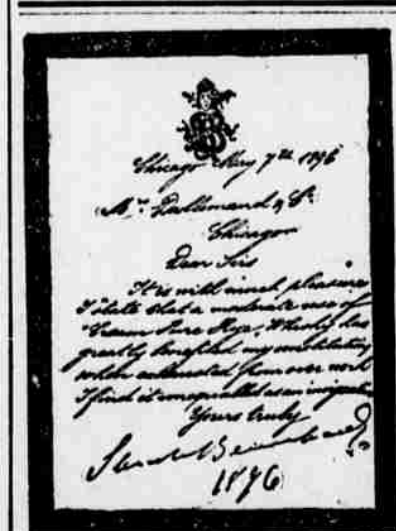 Chicago May 7th 1896
Mrs Dallemand & Co
Chicago
Dear Sirs
It is with much pleasure
I state that a moderate use of
"Cream Pure Rye" Whisky has
greatly benefited my constitution
when exhausted from over work
I find it unequalled as an invigorator
Yours truly
Sarah Bernhardt
1896